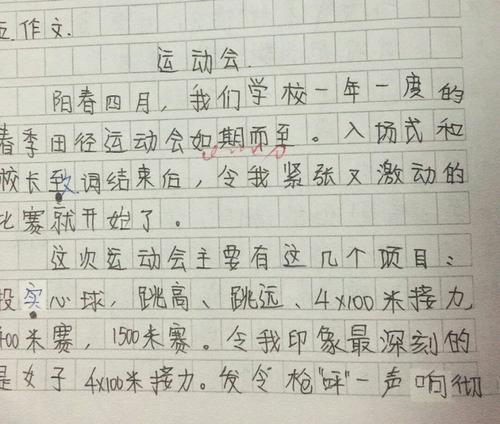 作文.
运动会.
阳春四月，我们学校一年一度的
春季田径运动会如期而至。入场式和
校长致词结束后，令我紧张又激动的
比赛就开始了。
这次运动会主要有这几个项目：
投实心球，跳高、跳远、4×100米接力
400米赛，1500米赛。令我印象最深刻的
是女子4×100米接力。发令枪“呯”一声响彻